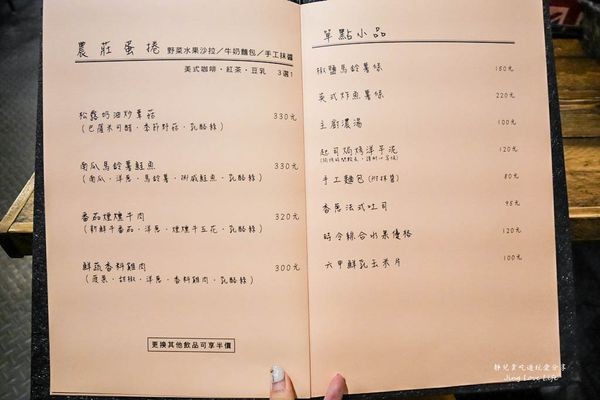 農莊蛋捲 野菜水果沙拉/牛奶麵包/手工抹醬
美式咖啡·紅茶·豆乳 3選1
松露奶油炒草菇 330元
(巴薩米可醋·季節野菇·乳酪絲)
南瓜馬鈴薯鮭魚 330元
(南瓜·洋蔥·馬鈴薯·挪威鮭魚·乳酪絲)
番茄煙燻牛肉 320元
(新鮮牛番茄·洋蔥·煙燻牛五花·乳酪絲)
鮮蔬香料雞肉 300元
(蔬果·甜椒·洋蔥·香料雞肉·乳酪絲)
更換其他飲品可享半價
單點小品
椒鹽馬鈴薯條 150元
英式炸魚薯條 220元
主廚濃湯 100元
起司焗烤洋芋泥 120元
手工麵包(附抹醬) 80元
香蔥法式吐司 95元
時令綜合水果優格 120元
六甲鮮乳玉米片 100元
靜兒貪吃遊玩愛分享
Jing Love Life